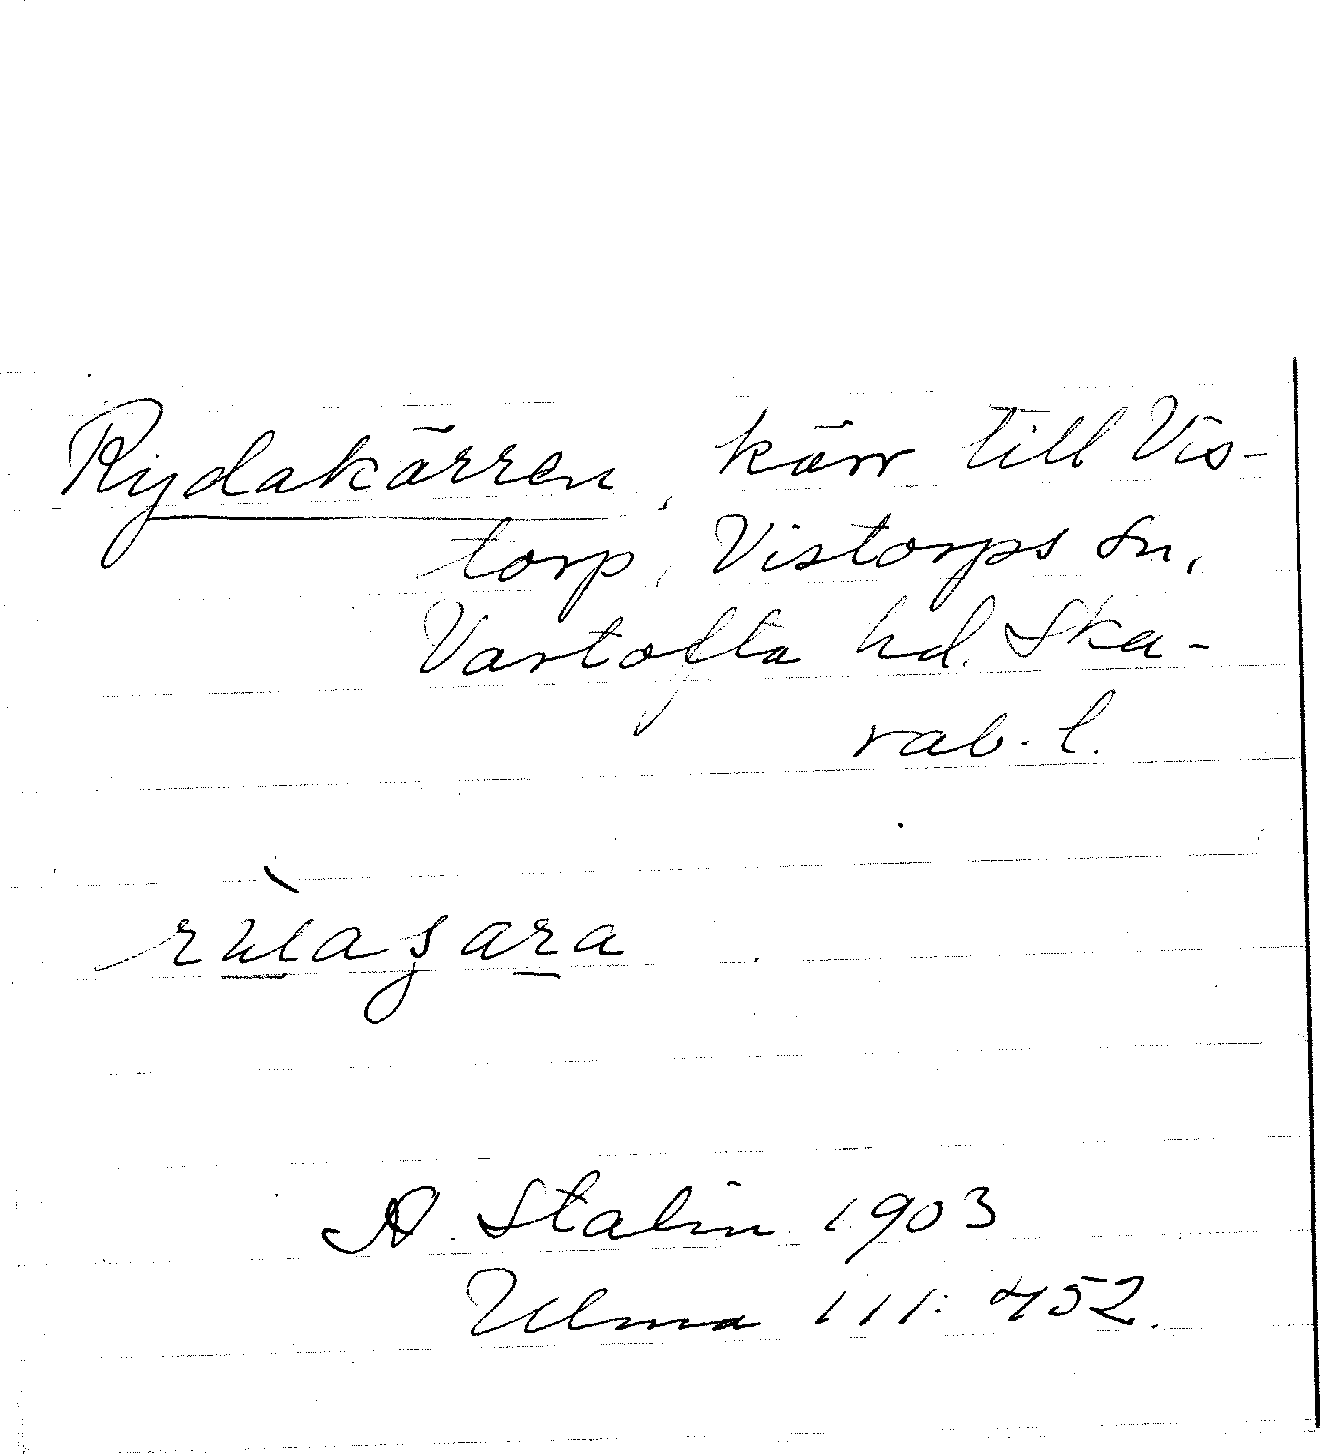 Rydakärren, kärr till Vis-
torp, Vistorps sn,
Vartofta hd. Ska-
rab. l.
A. Stalin 1903
Ulma 111:452.